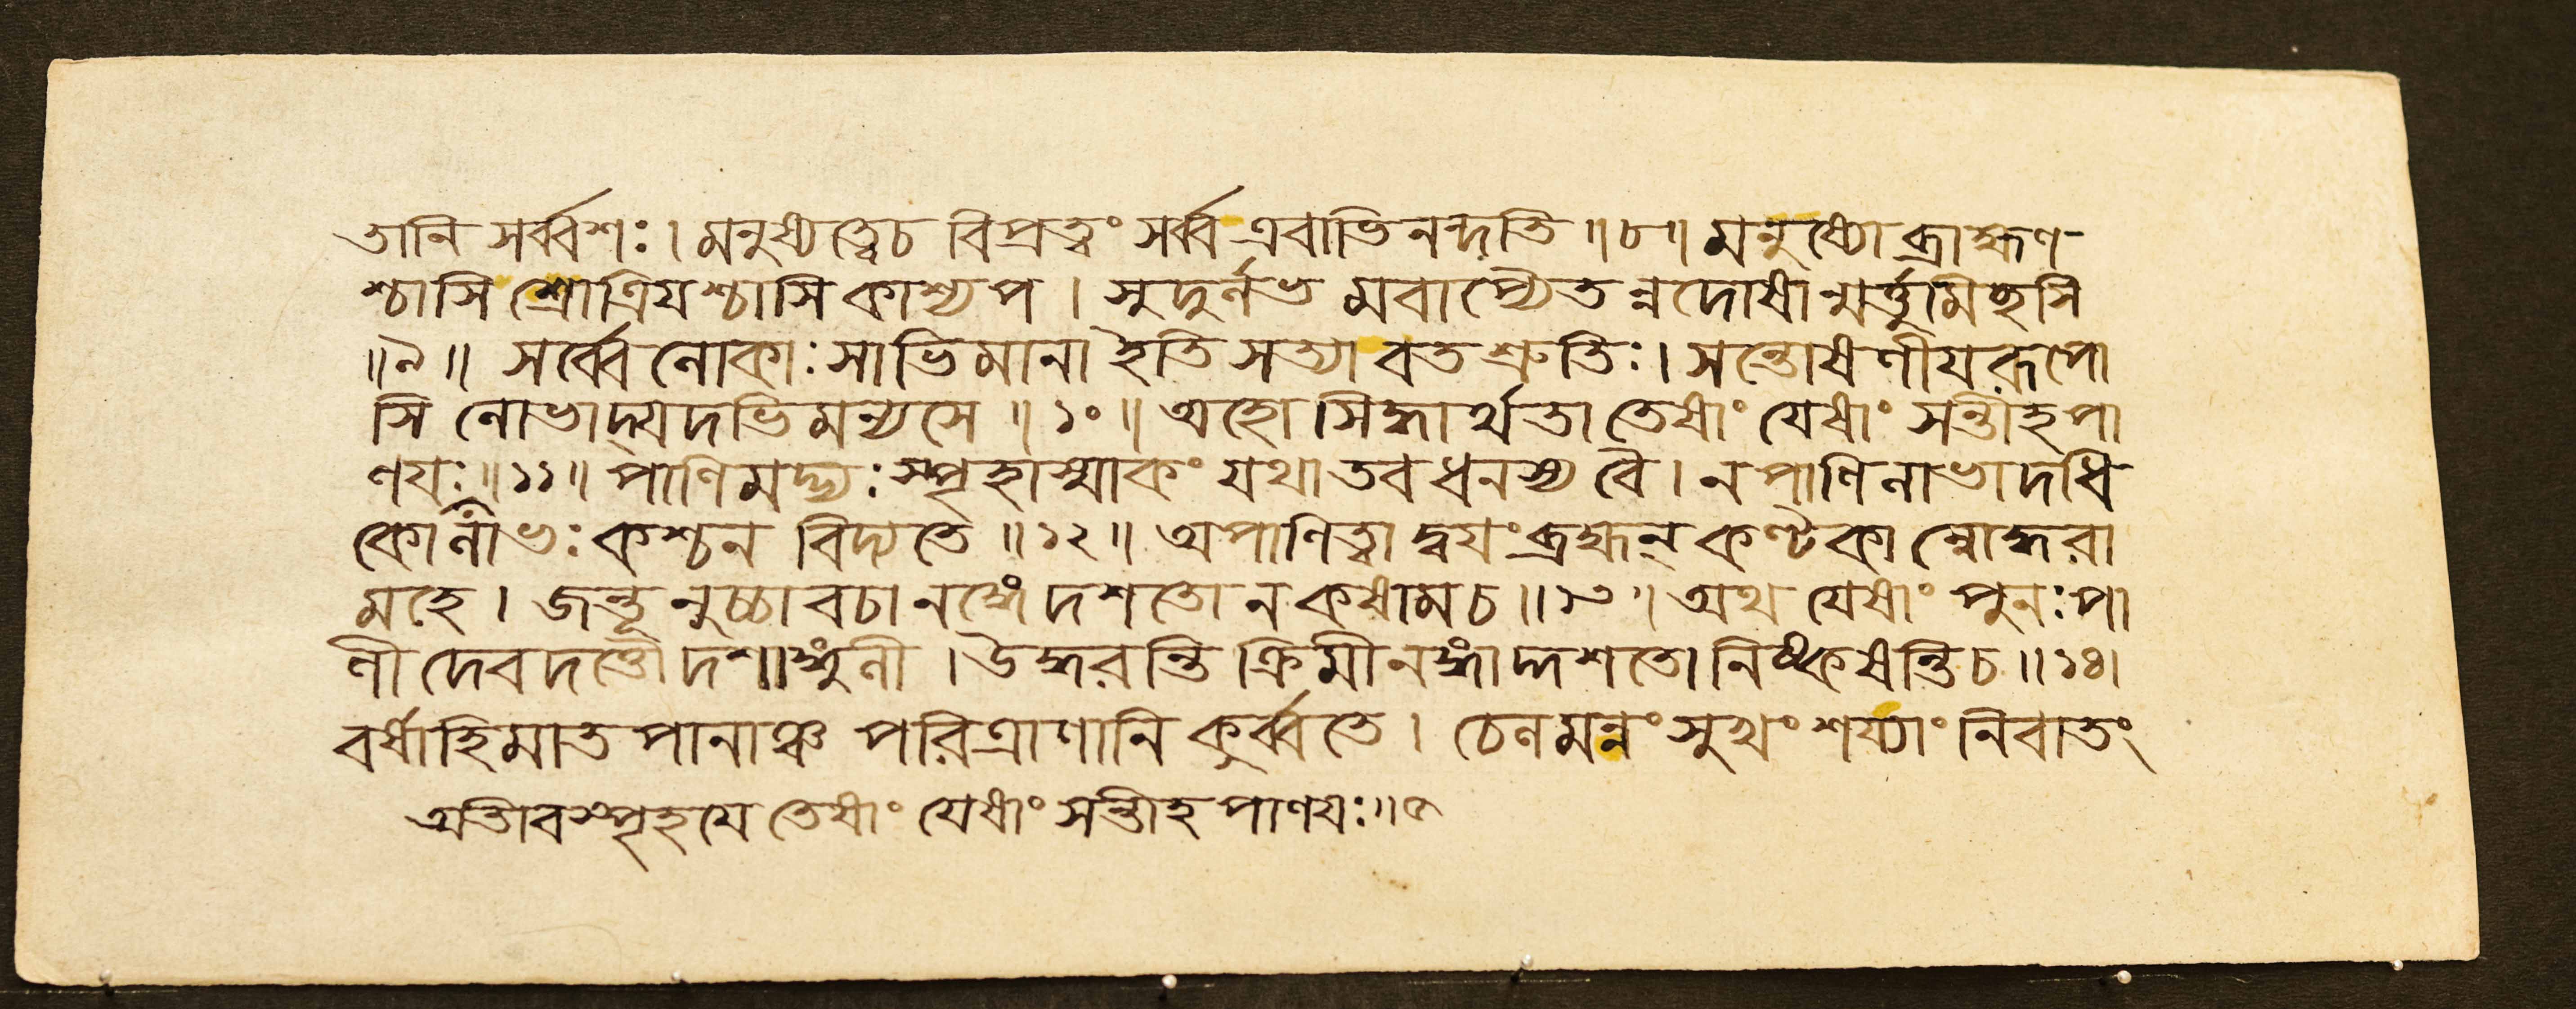 তানি সর্ব্বশঃ। মনুষ্যত্বেচ বিপ্রত্বং সর্ব্ব এবাভিনন্দতি ॥৮॥ মনুষ্যো ব্রাহ্মণ-
শ্চাসি শ্রোত্রিয়শ্চাসি কাশ্যপ। সুদুর্লভ মবাপ্যৈতন্নদোষান্মর্ত্তুমিহসি
॥৯॥ সর্ব্বে লোকাঃ সাভিমানা ইতি সত্যা বত শ্রুতিঃ। সন্তোষণীয়রূপো
সি লোভাদ্যদভিমন্যসে ॥১০॥ অহো সিদ্ধার্থতা তেষাং যেষাং সন্তীহ পা
ণয়ঃ॥১১॥ পাণিমদ্ভ্যঃ স্পৃহাস্মাকং যথা তব ধনস্য বৈ। ন পাণিলাভাদধি
কোর্লাভঃ কশ্চন বিদ্যতে ॥১২॥ অপাণিত্বাদ্বয়ং ব্রহ্মন্ কণ্টকান্নোদ্ধরা
মহে। জন্তূনুচ্চাবচানঙ্গে দশতো ন কষামচ॥১৩॥ অথ যেষাং পুনঃ পা
ণী দেবদত্তৌ দশাঙ্গুলী। উদ্ধরন্তি ক্রিমীনঙ্গাদ্দশতো নিষ্কষন্তি চ॥১৪।
বর্ষাহিমাতপানাঞ্চ পরিত্রাণানি কুর্ব্বতে। চেলমন্নং সুখং শয্যাং নিবাতং
অতীবস্পৃহয়ে তেষাং যেষাং সন্তীহ পাণয়ঃ॥